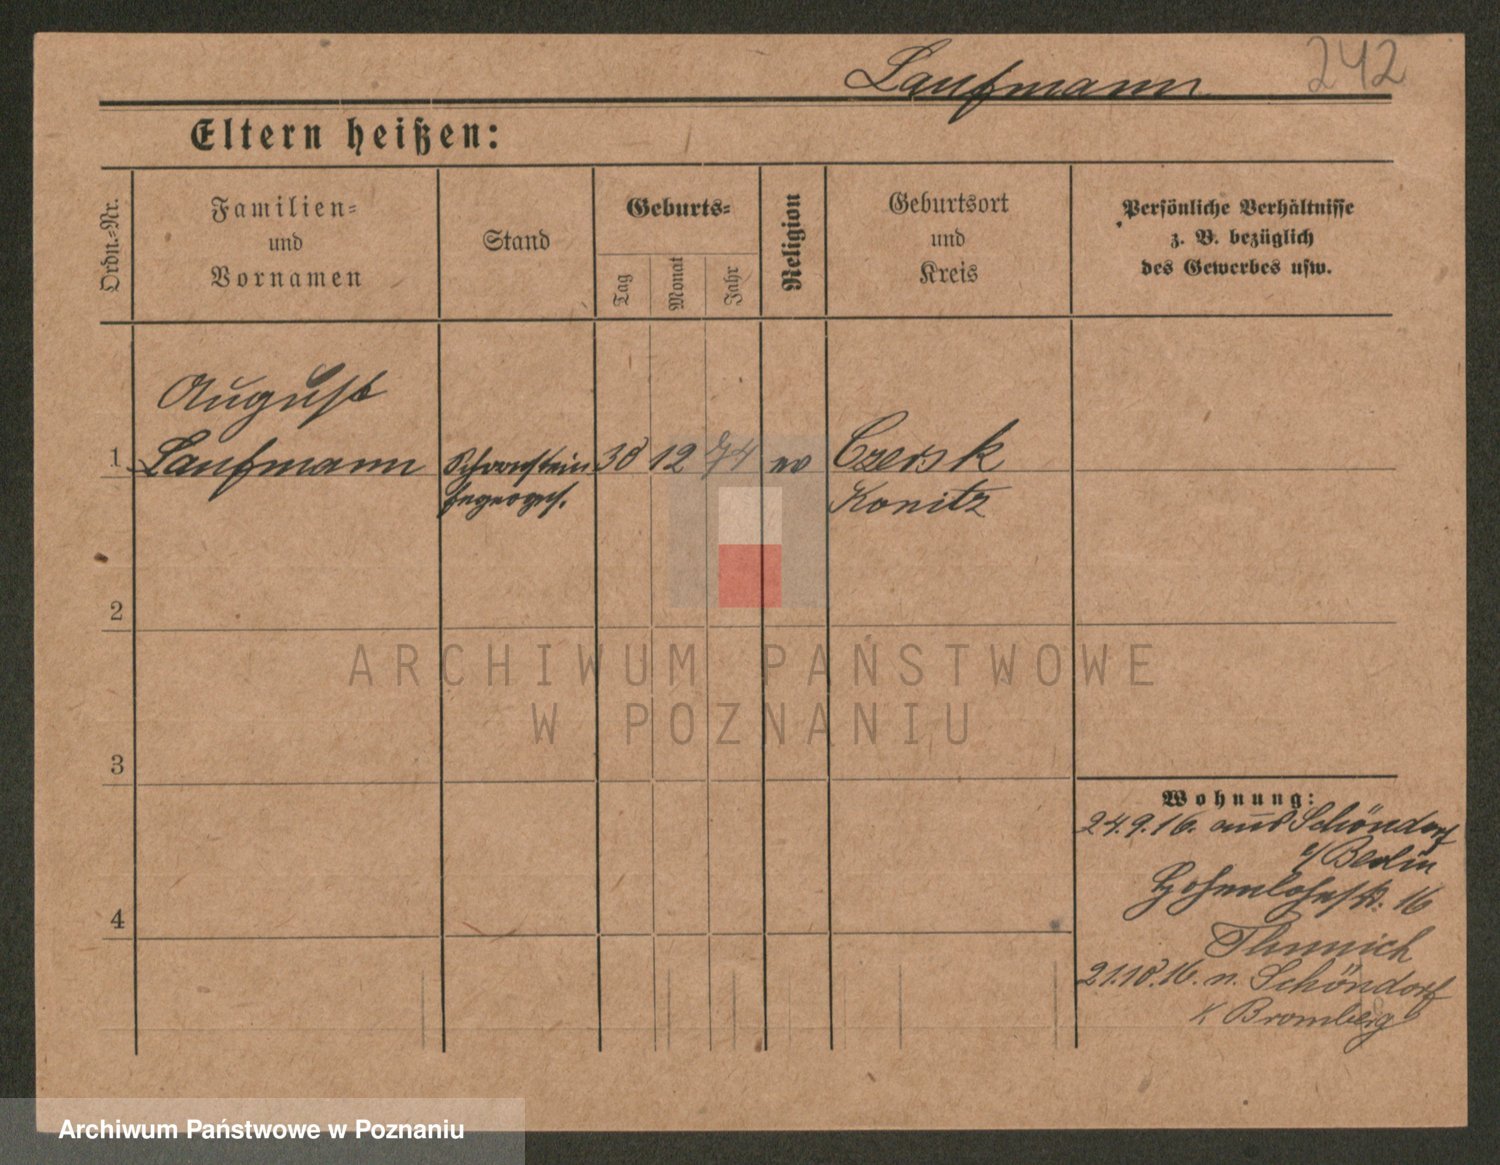 Laufmann
242
Eltern heißen:
Ordn.-Nr.
Familien-
und
Vornamen
Stand
Geburts-
Tag
Monat
Jahr
Religion
Geburtsort
und
Kreis
Persönliche Verhältnisse
z. B. bezüglich
des Gewerbes usw.
August
1 Laufmann Schornstein 30 12 74 ev Czersk
fegergs. Konitz
2
3
4
Wohnung:
24.9.16. aus Schöndorf
Berlin
Hohenlohestr. 16
21.10.16. n. Schöndorf
K Bromberg
ARCHIWUM PAŃSTWOWE
W POZNANIU
Archiwum Państwowe w Poznaniu